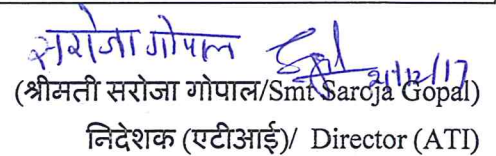 सरोजा गोपाल
21/12/17
(श्रीमती सरोजा गोपाल/Smt Saroja Gopal)
निदेशक (एटीआई)/ Director (ATI)